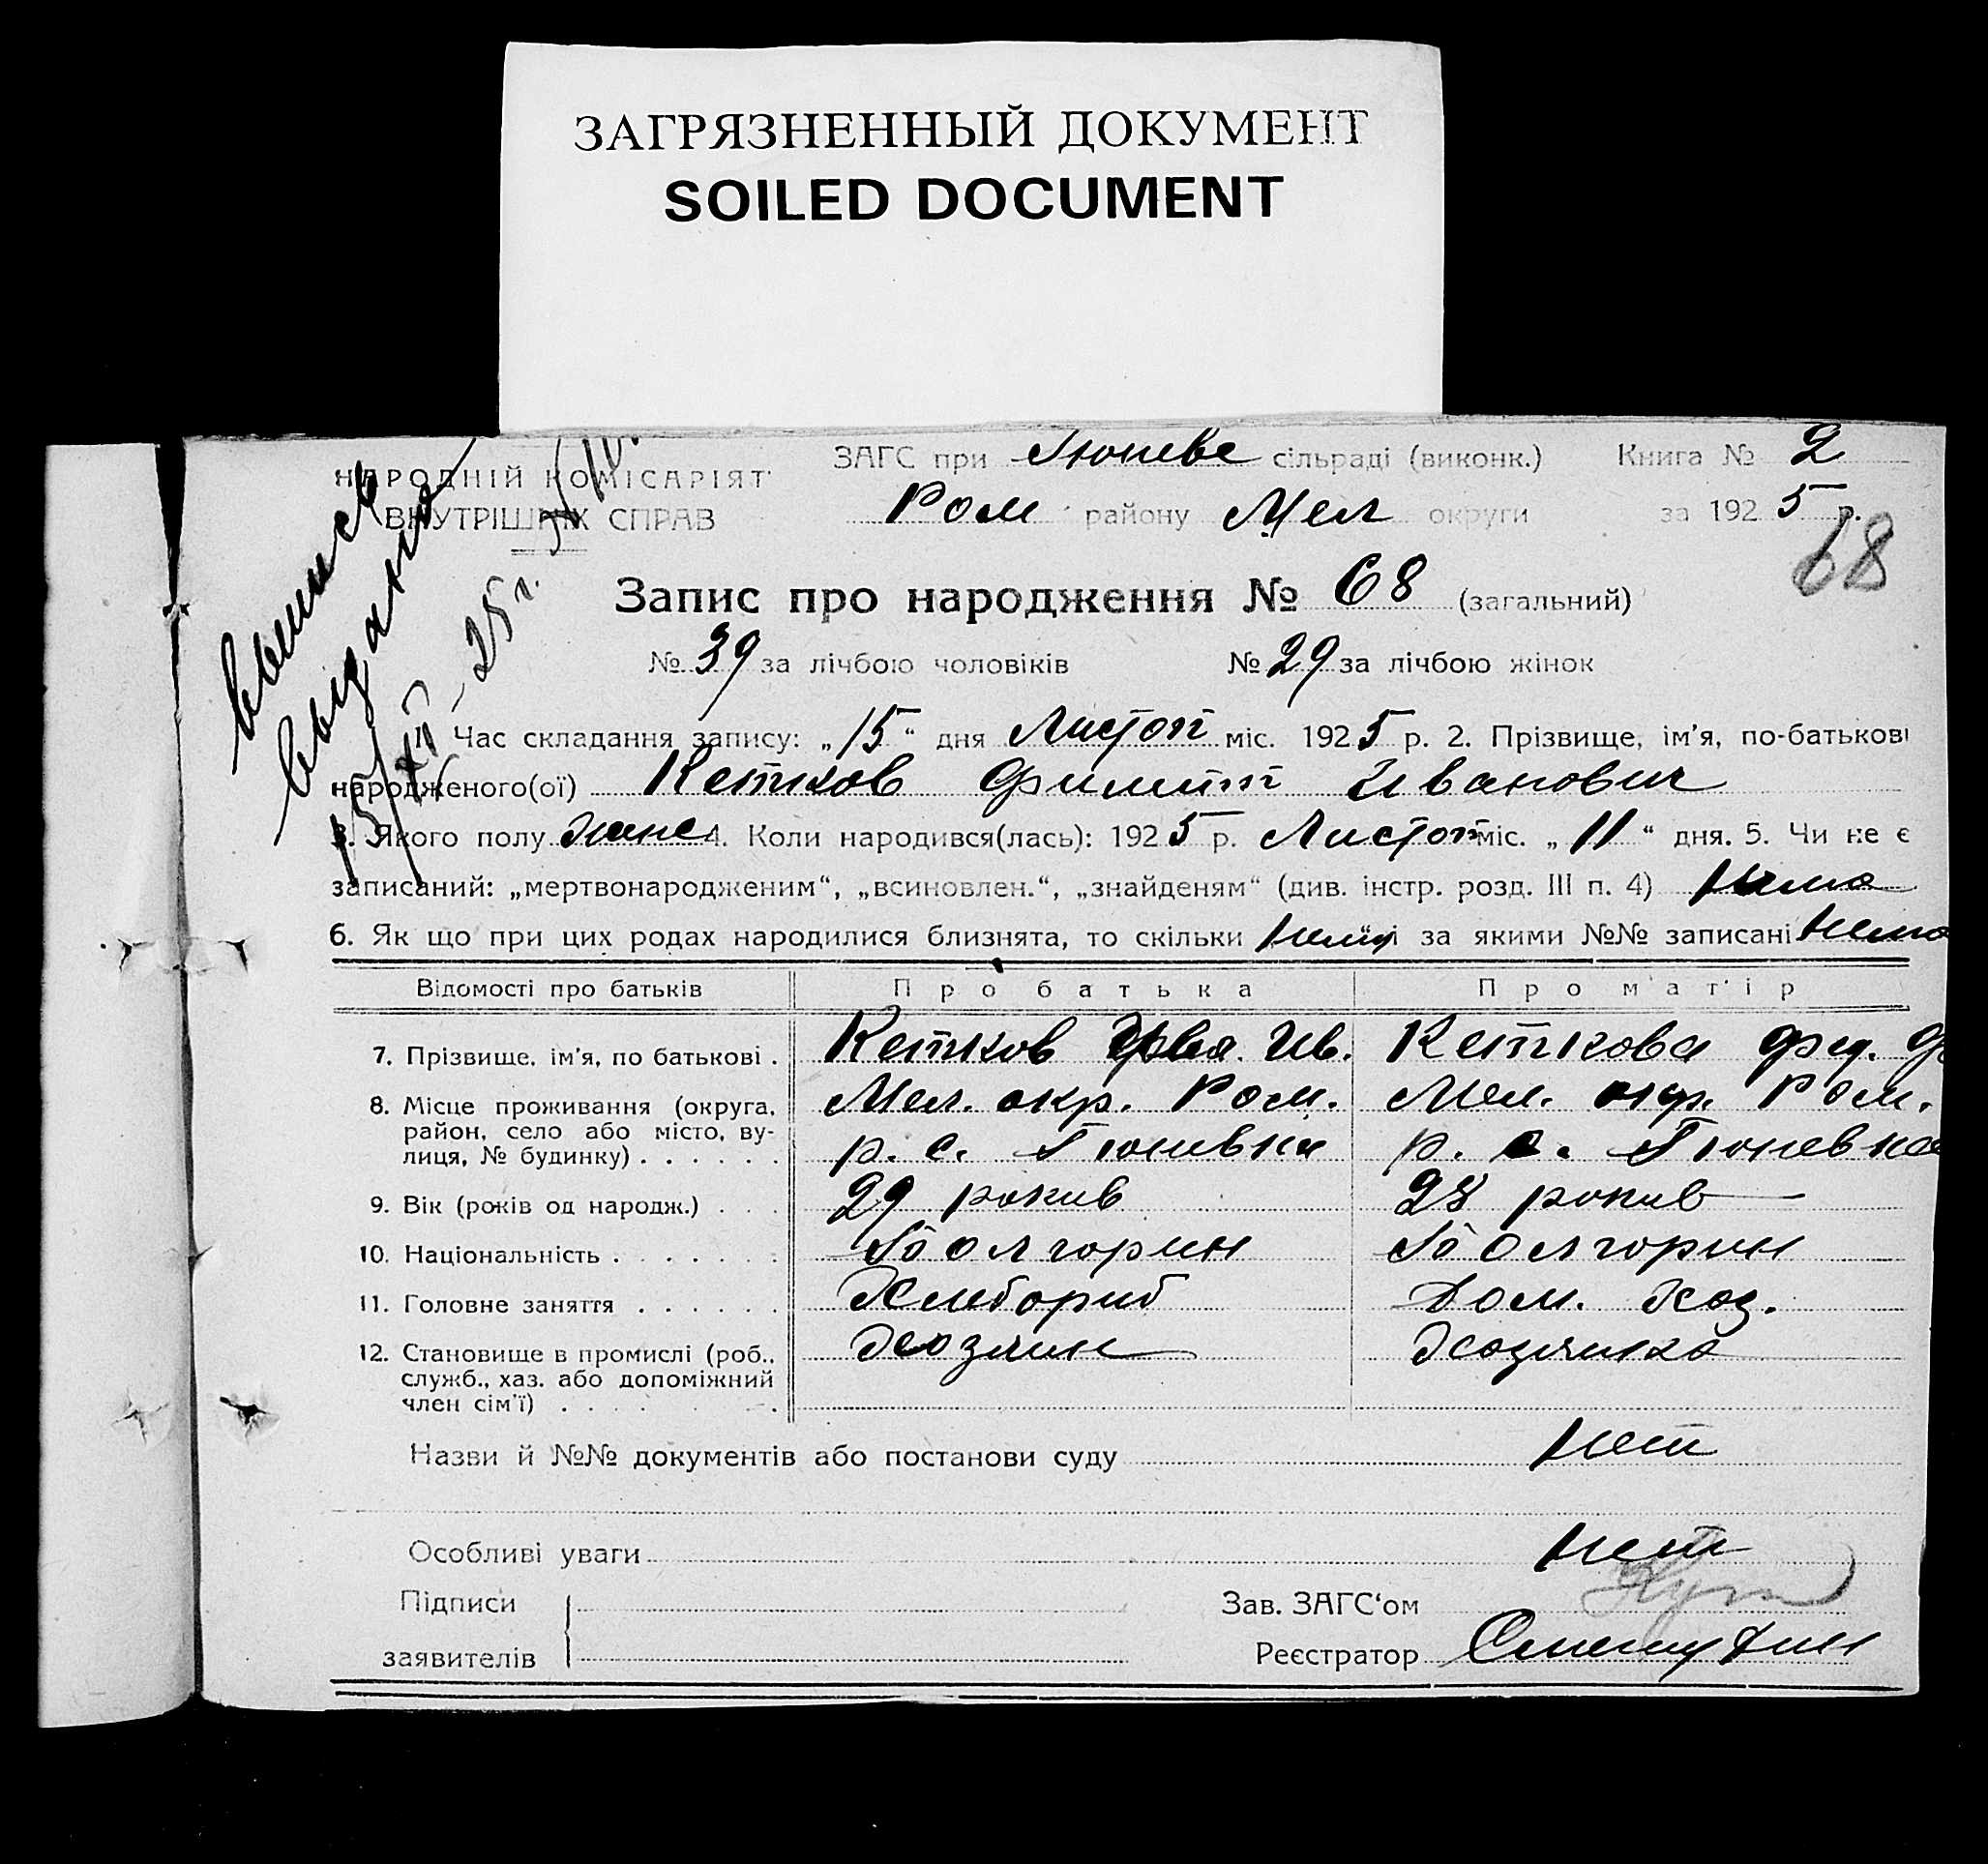 ЗАГРЯЗНЕННЫЙ ДОКУМЕНТ
SOILED DOCUMENT
НАРОДНІЙ КОМІСАРІЯТ
ВНУТРІШНІХ СПРАВ
ЗАГС при Гюневе сільраді (виконк.) Книга № 2
Ром району Мел округи за 1925 р.
68
Запис про народження № 68 (загальний)
№ 39 за лічбою чоловіків № 29 за лічбою жінок
выпись
выдана
15/XII-25 г.
1. Час складання запису: „15“ дня Листоп міс. 1925 р. 2. Прізвище, ім'я, по-батькові
народженого(ої) Кетков Филипп Иванович
3. Якого полу 4. Коли народився(лась): 1925 р. Листоп міс. „11“ дня. 5. Чи не є
записаний: „мертвонародженим“, „всиновлен.“, „знайденям“ (див. інстр. розд. III п. 4) Нема
6. Як що при цих родах народилися близнята, то скільки нема й за якими №№ записані нема
Відомості про батьків Про батька Про матір
7. Прізвище, ім'я, по батькові . Кетков Ив. Кеткова Фед.
8. Місце проживання (округа, район, село або місто, вулиця, № будинку) . . . . . .
Мел. окр. Ром. Мел. окр. Ром.
р. с. Гюневка р. с. Гюневка
9. Вік (років од народж.) . . . 29 рокив 28 рокив
10. Національність . . . . . . . Болгорин Болгорин
11. Головне заняття . . . . . . Хлебориб Дом. хоз.
12. Становище в промислі (роб., Хозяин Хозяинка
служб., хаз. або допоміжний
член сім'ї) . . . . . .
Назви й №№ документів або постанови суду нет
Особливі уваги нет
Підписи Зав. ЗАГС‘ом
заявителів Реєстратор